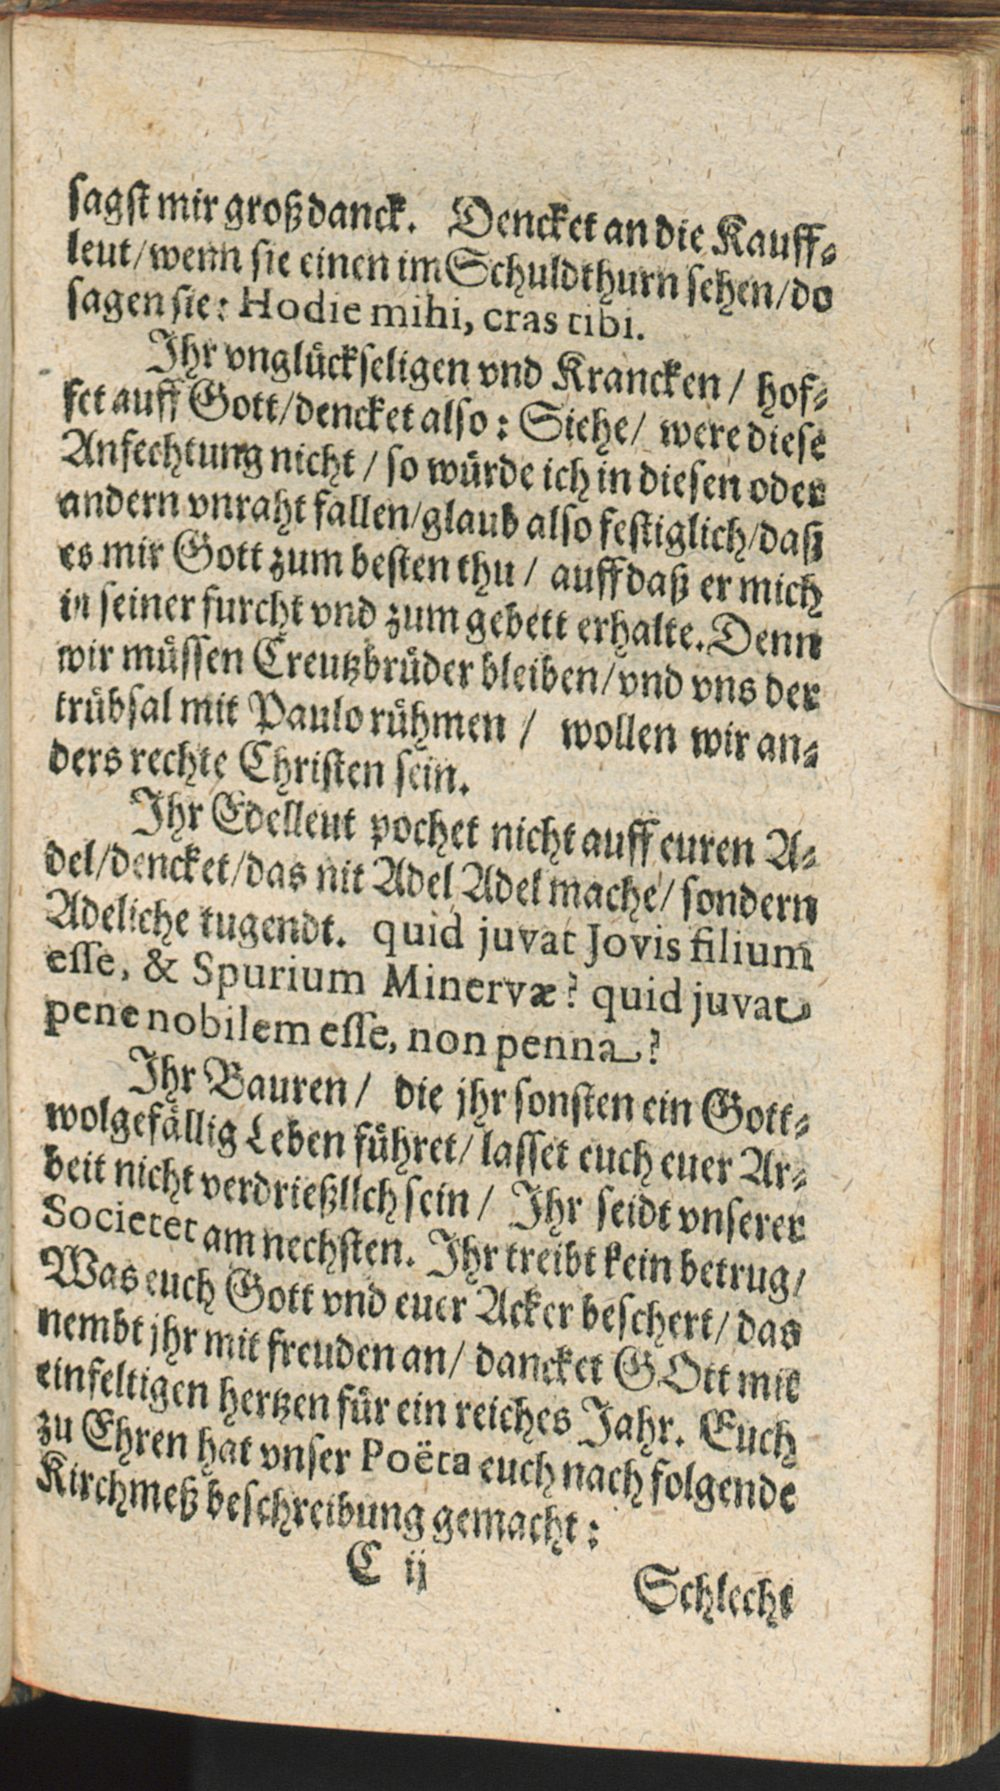 sagst mir groß danck. Dencket an die Kauff-
leut/wenn sie einen im Schuldthurn sehen/do
sagen sie: Hodie mihi, cras tibi.
Ihr vnglückseligen vnd Krancken / hof-
fet auff Gott/dencket also: Siehe/ were diese
Anfechtung nicht / so würde ich in diesen oder
andern vnraht fallen/glaub also festiglich/daß
es mir Gott zum besten thu / auff daß er mich
in seiner furcht vnd zum gebett erhalte. Denn
wir müssen Creutzbrüder bleiben/vnd vns der
trübsal mit Paulo rühmen / wollen wir an-
ders rechte Christen sein.
Ihr Edelleut pochet nicht auff euren A-
del/dencket/das nit Adel Adel mache/ sondern
Adeliche tugendt. quid juvat Jovis filium
esse, & Spurium Minervæ? quid juvat
pene nobilem esse, non penna?
Ihr Bauren / die jhr sonsten ein Gott-
wolgefällig Leben führet/ lasset euch euer Ar-
beit nicht verdrießllch sein / Ihr seidt vnserer
Societet am nechsten. Ihr treibt kein betrug/
Was euch Gott vnd euer Acker beschert/ das
nembt jhr mit freuden an/ dancket GOtt mit
einfeltigen hertzen für ein reiches Jahr. Euch
zu Ehren hat vnser Poëta euch nach folgende
Kirchmeß beschreibung gemacht:
C ij
Schlecht